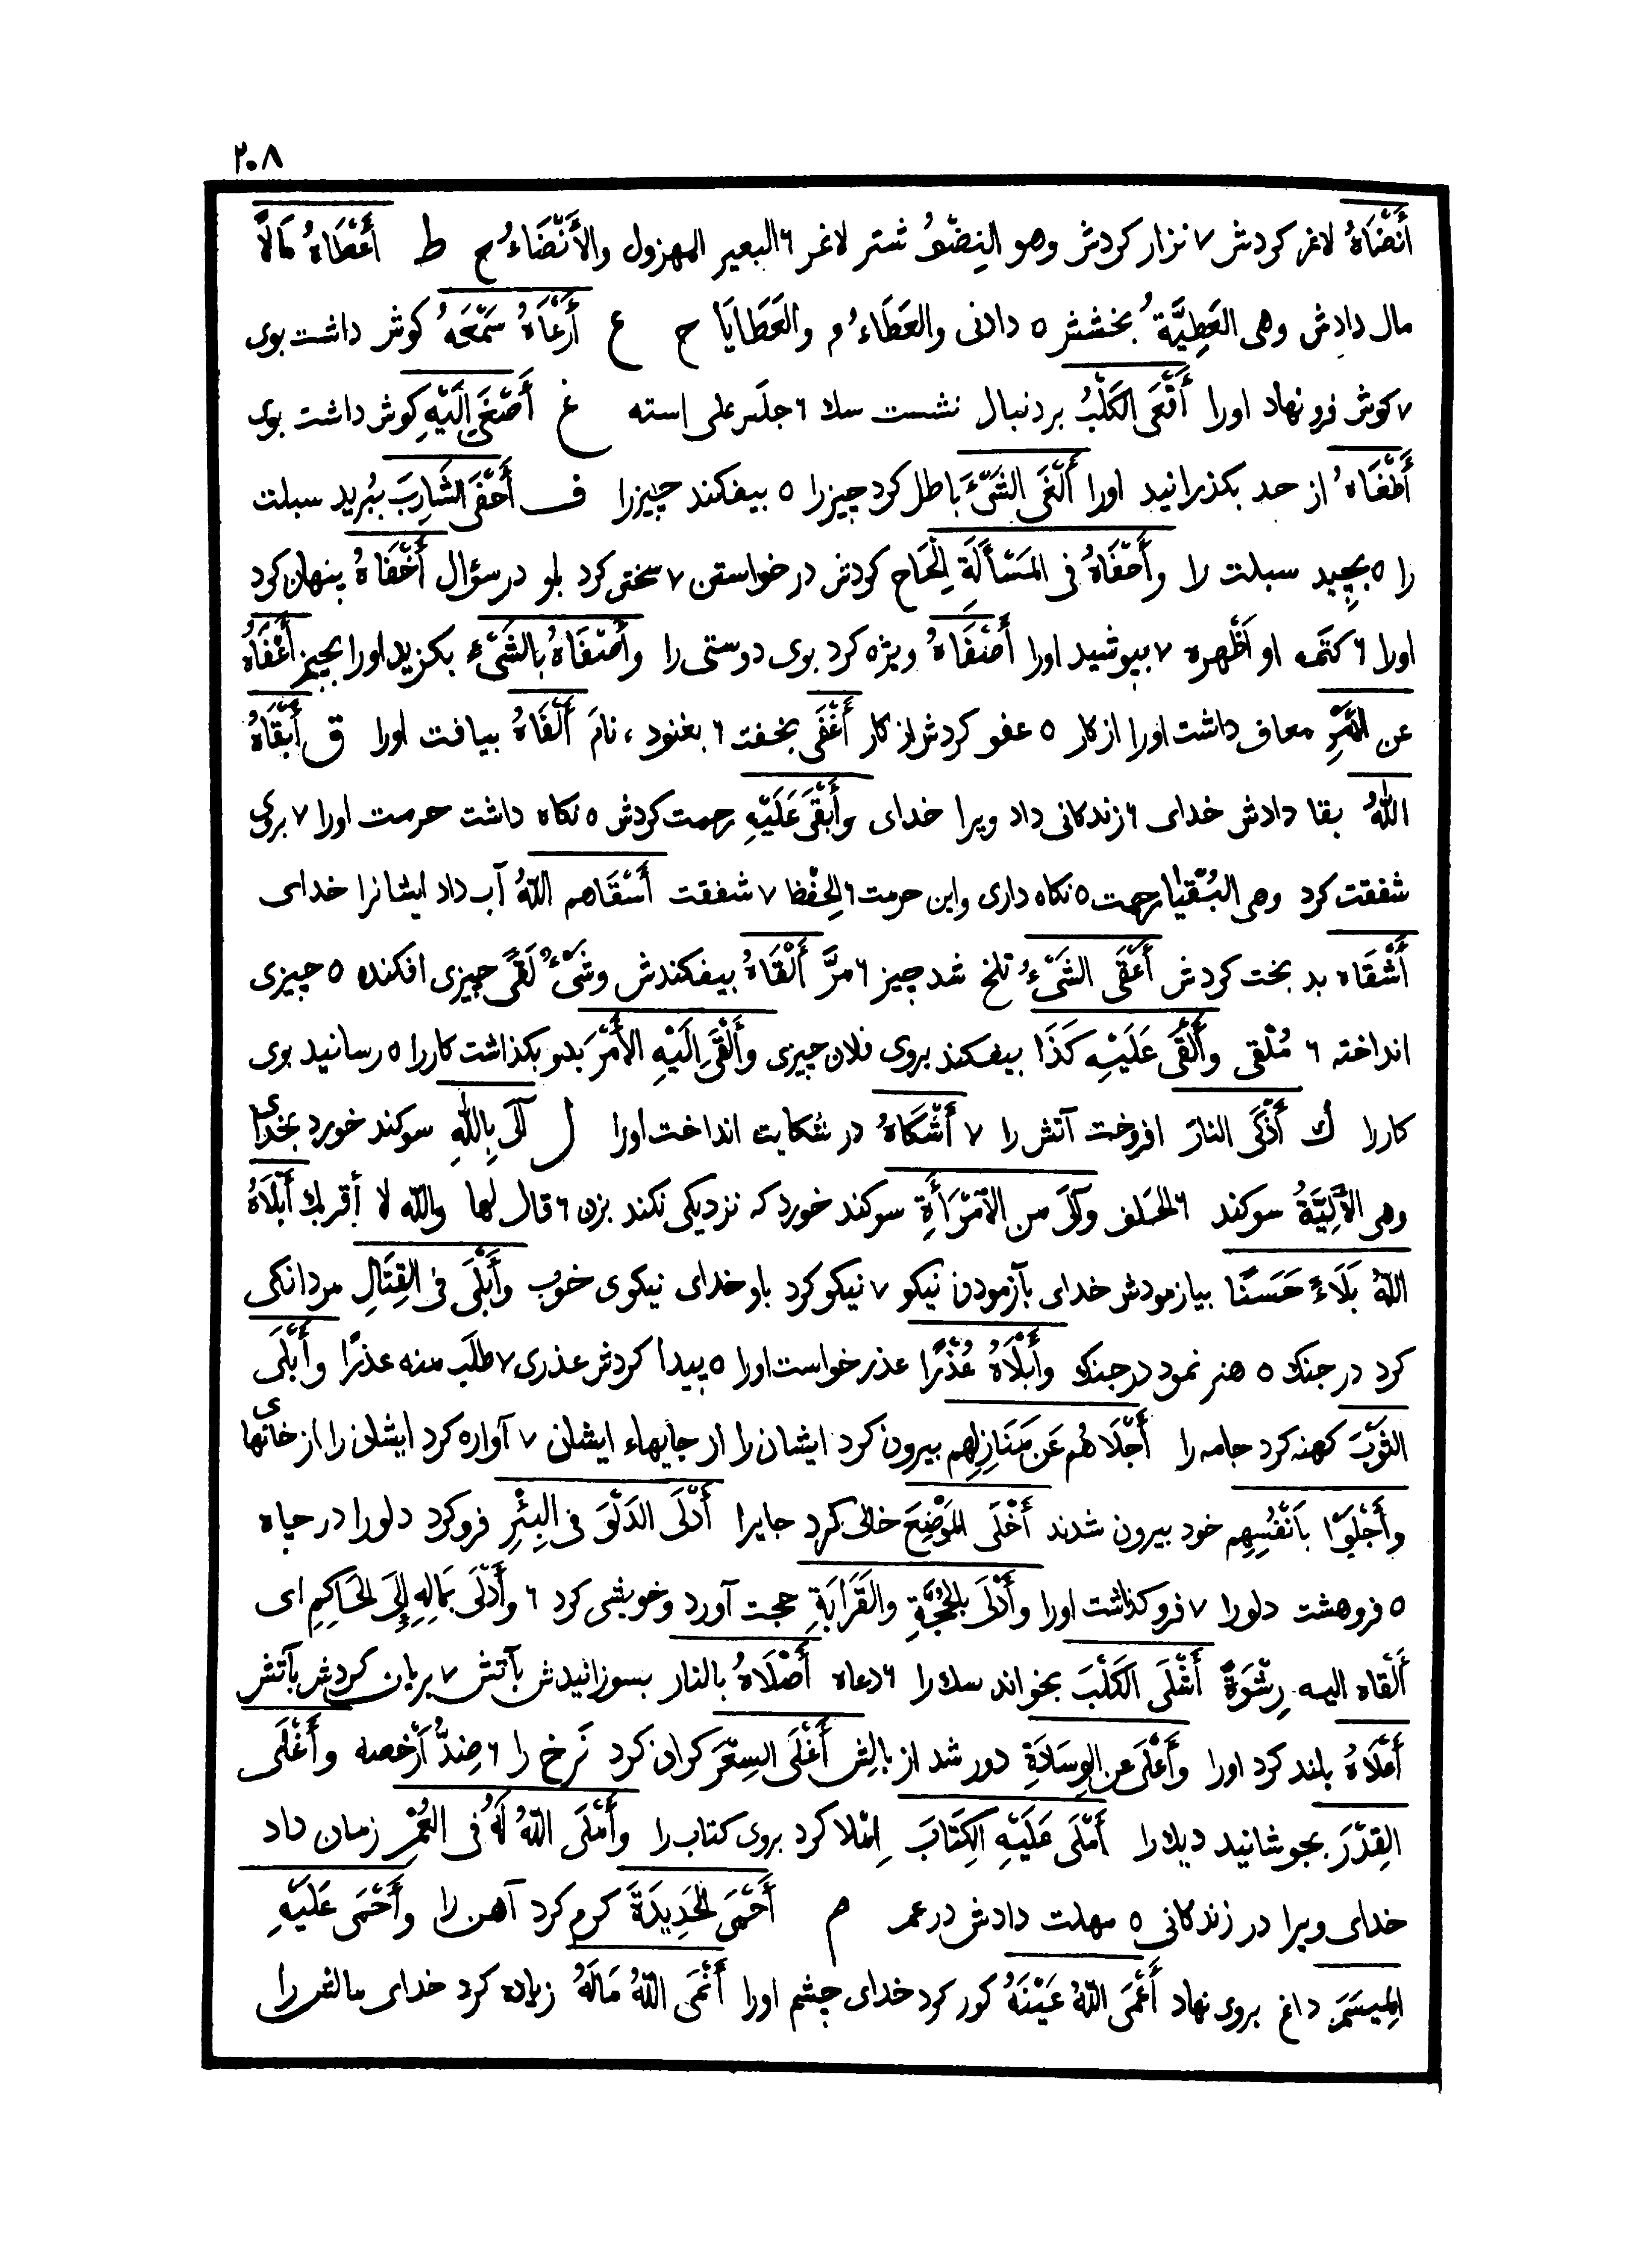 ٢٠٨
أَنْضَاهُ لاغر کردش ٧ نزار کردش وهو النِضْوُ شتر لاغر ٦ البعير المهزول والأَنْضَاءُ ج ط أَعْطَاهُ مَالًا
مال دادش وهی العَطِيَّةُ بخشش ٥ دادنی والعَطَاءُ م والعَطَايَا ج ع أَرْعَاهُ سَمْعَهُ کوش داشت بوی
٧ کوش فرو نهاد اورا أَقْعَى الكَلْبُ بر دنبال نشست سك ٦ جلس على استه غ أَصْغَى إِلَيْهِ کوش داشت بوی
أَطْغَاهُ از حد بکذرانید اورا أَلْغَى الشَىْءَ باطل کرد چیزرا ٥ بیفکند چیزرا ف أَحْفَى الشَارِبَ ببُرید سبلت
را ٥ بچید سبلت را وأَحْفَاهُ فى المَسْأَلَةِ الحاح کردش در خواستن ٧ سختی کرد باو در سؤال أَخْفَاهُ پنهان کرد
اورا ٦ کتمه او أَظْهره ٧ بپوشید اورا أَصْفَاهُ ویژه کرد بوی دوستی را وأَصْفَاهُ بالشَىْءِ بکزید اورا بچیز أَعْفَاهُ
عن الأَمْرِ معاف داشت اورا از کار ٥ عفو کردش از کار أَغْفَى بخفت ٦ بغنود ، نامَ أَلْفَاهُ بیافت اورا ق أَبْقَاهُ
اللهُ بقا دادش خدای ٦ زندکانی داد ویرا خدای وأَبْقَى عَلَيْهِ رحمت کردش ٥ نکاه داشت حرمت اورا ٧ بروی
شفقت کرد وهی البُقْيَا رحمت ٥ نکاه داری واین حرمت ٦ الحِفْظ ٧ شفقت أَسْقَاهم اللهُ آب داد ایشانرا خدای
أَشْقَاه بد بخت کردش أَعْقَى الشَىْءُ تلخ شد چیز ٦ مرَّ أَلْقَاهُ بیفکندش وشَىْءٌ لَقًى چیزی افکنده ٥ چیزی
انداخته ٦ مُلْقى وأَلْقَى عَلَيْهِ كَذَا بیفکند بروی فلان چیزی وأَلْقَى إِلَيْهِ الأَمْرَ بدو بکذاشت کاررا ٥ رسانید بوی
کاررا ك أَذْكَى النارَ افروخت آتش را ٧ أَشْكَاهُ در شکایت انداخت اورا ل آلَى بِاللهِ سوکند خورد بخدای
وهی الأَلِيَّةُ سوکند ٦ الحلف وآلَى من الاَمْرَأَةِ سوکند خورد که نزدیکی نکند بزن ٦ قال لها والله لا أقربك أَبْلَاهُ
اللهُ بَلَاءً حَسَنًا بیازمودش خدای بآزمودن نیکو ٧ نیکو کرد باو خدای نیکوی خوب وأَبْلَى فى القِتَالِ مردانکی
کرد در جنك ٥ هنر نمود در جنك وأَبْلَاهُ عُذْرًا عذر خواست اورا ٥ پیدا کردش عذری ٧ طلب منه عذرًا وأَبْلَى
الثَوْبَ کهنه کرد جامه را أَجْلَاهُم عَن مَنَازِلِهِم بیرون کرد ایشان را از جایهاء ایشان ٧ آواره کرد ایشان را از خانهای
وأَجْلَوْا بأَنْفُسِهِم خود بیرون شدند أَخْلَى المَوْضِعَ خالی کرد جایرا أَدْلَى الدَلْوَ فى البِئْرِ فرو کرد دلورا در چاه
٥ فروهشت دلورا ٧ فرو کذاشت اورا وأَدْلَى بالحُجَّةِ والقَرَابَةِ حجت آورد وخویشی کرد ٦ وأَدْلَى بمَالِهِ إِلَى الحَاكِمِ ای
أَلْقاه اليه رِشْوَةً أَشْلَى الكَلْبَ بخواند سك را ٦ دعاه أَصْلَاهُ بالنار بسوزانیدش بآتش ٧ بریان کردش بآتش
أَعْلَاهُ بلند کرد اورا وأَعْلَى عن الوِسَادَةِ دور شد از بالش أَغْلَى السِعْرَ کران کرد نرخ را ٦ ضِدُّ أَرْخصه وأَغْلَى
القِدْرَ بجوشانید دیك را أَمْلَى عَلَيْهِ الكِتَابَ اِملا کرد بروی کتاب را وأَمْلَى اللهُ لَهُ فى العُمْرِ زمان داد
خدای ویرا در زندکانی ٥ مهلت دادش در عمر م أَحْمَى الحَدِيدَةَ کرم کرد آهن را وأَحْمَى عَلَيْهِ
المِيسَمَ داغ بروی نهاد أَعْمَى اللهُ عَيْنَهُ کور کرد خدای چشم اورا أَنْمَى اللهُ مَالَهُ زیاده کرد خدای مالش را